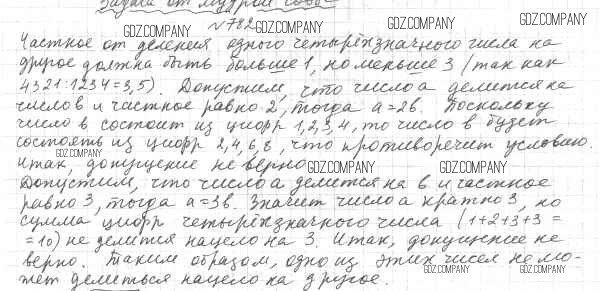 Задача от мудрой совы
№782
Частное от деления одного четырёхзначного числа на
другое должна быть больше 1, но меньше 3 (так как
4321:1234=3,5). Допустим, что число а делится на
число в и частное равно 2, тогда а=2в. Поскольку
число в состоит из цифр 1,2,3,4, то число в будет
состоять из цифр 2,4,6,8, что противоречит условию.
Итак, допущение не верно.
Допустим, что число а делится на в и частное
равно 3, тогда а=3в. Значит число а кратно 3, но
сумма цифр четырёхзначного числа (1+2+3+3=
=10) не делится нацело на 3. Итак, допущение не
верно. Таким образом, одно из этих чисел не мо-
жет делиться нацело на другое.
GDZ.COMPANY
GDZ.COMPANY
GDZ.COMPANY
GDZ.COMPANY
GDZ.COMPANY
GDZ.COMPANY
GDZ.COMPANY
GDZ.COMPANY
GDZ.COMPANY
GDZ.COMPANY